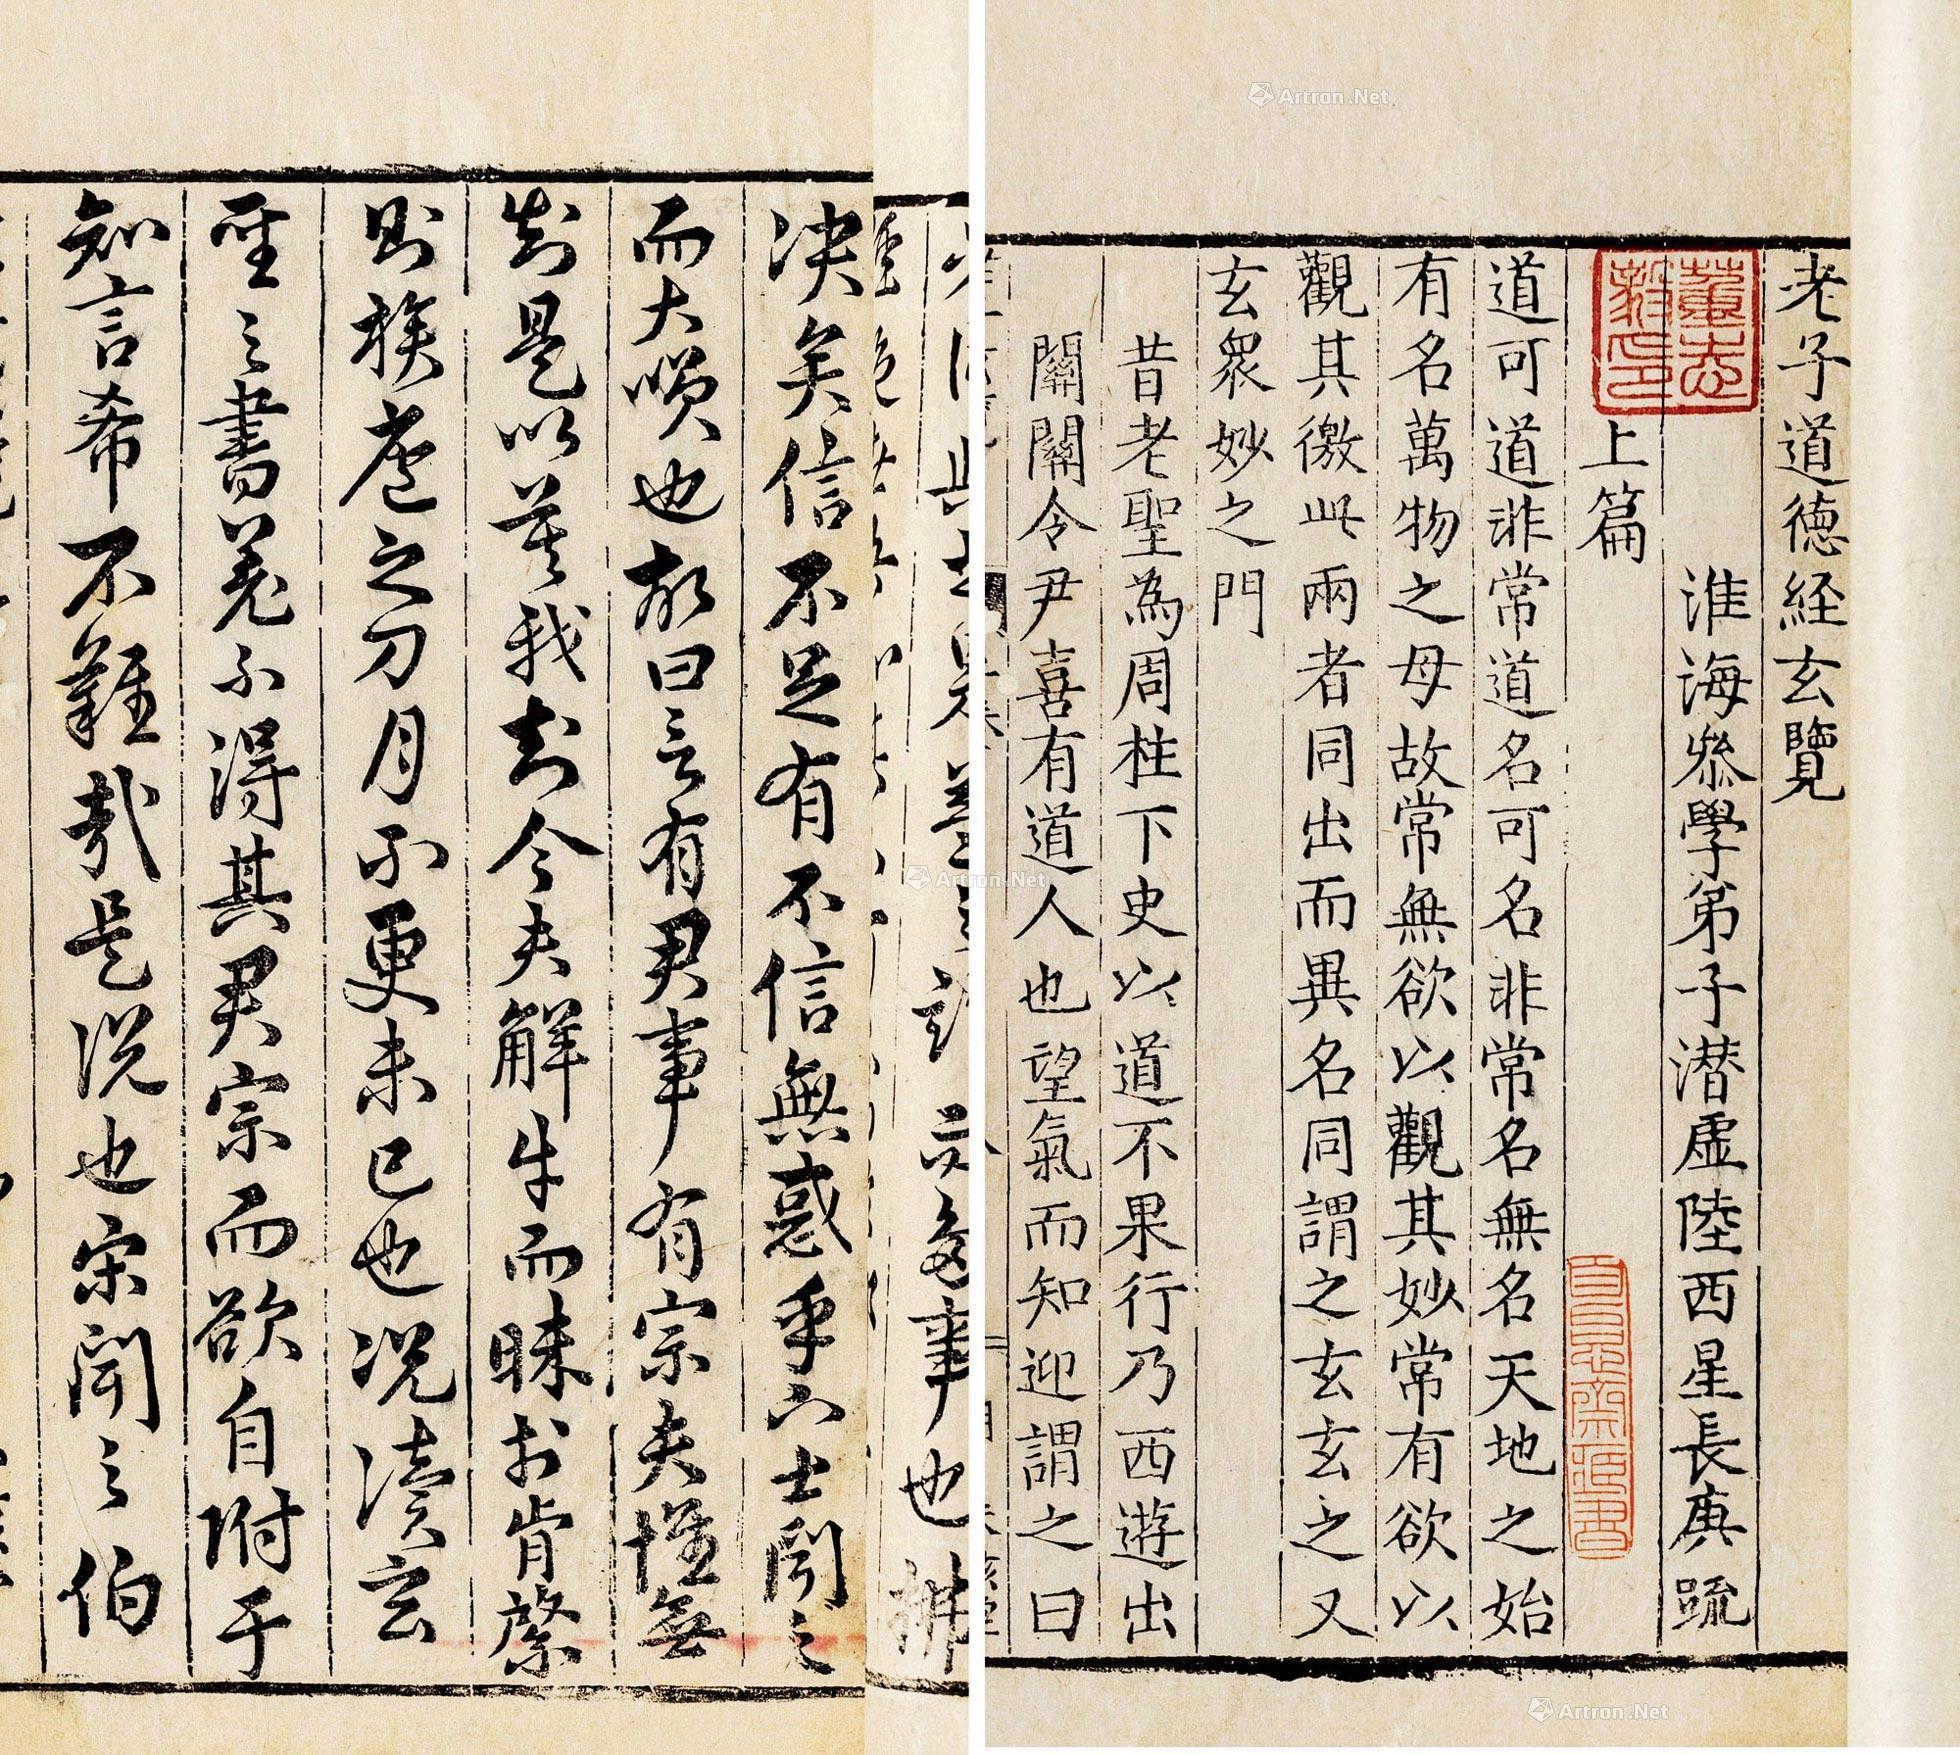 老子道德経玄覽
淮海叅學弟子潜虛陸西星長庚䟽
上篇
道可道非常道名可名非常名無名天地之始
有名萬物之母故常無欲以觀其妙常有欲以
觀其徼此兩者同出而異名同謂之玄玄之又
玄衆妙之門
昔老聖為周柱下史以道不果行乃西遊出
關關令尹喜有道人也望氣而知迎謂之曰
事也
决矣信不足有不信無惑乎下士聞之
而大噗也故曰言有君事有宗夫惟無
知是以莫我知今夫解牛而昧於肯綮
則族庖之刀月不更未已也况讀玄
聖之書羌不得其君宗而欲自附于
知言希不難哉是说也宋聞之伯
Artron.Net
Artron.Net
Artron.Net